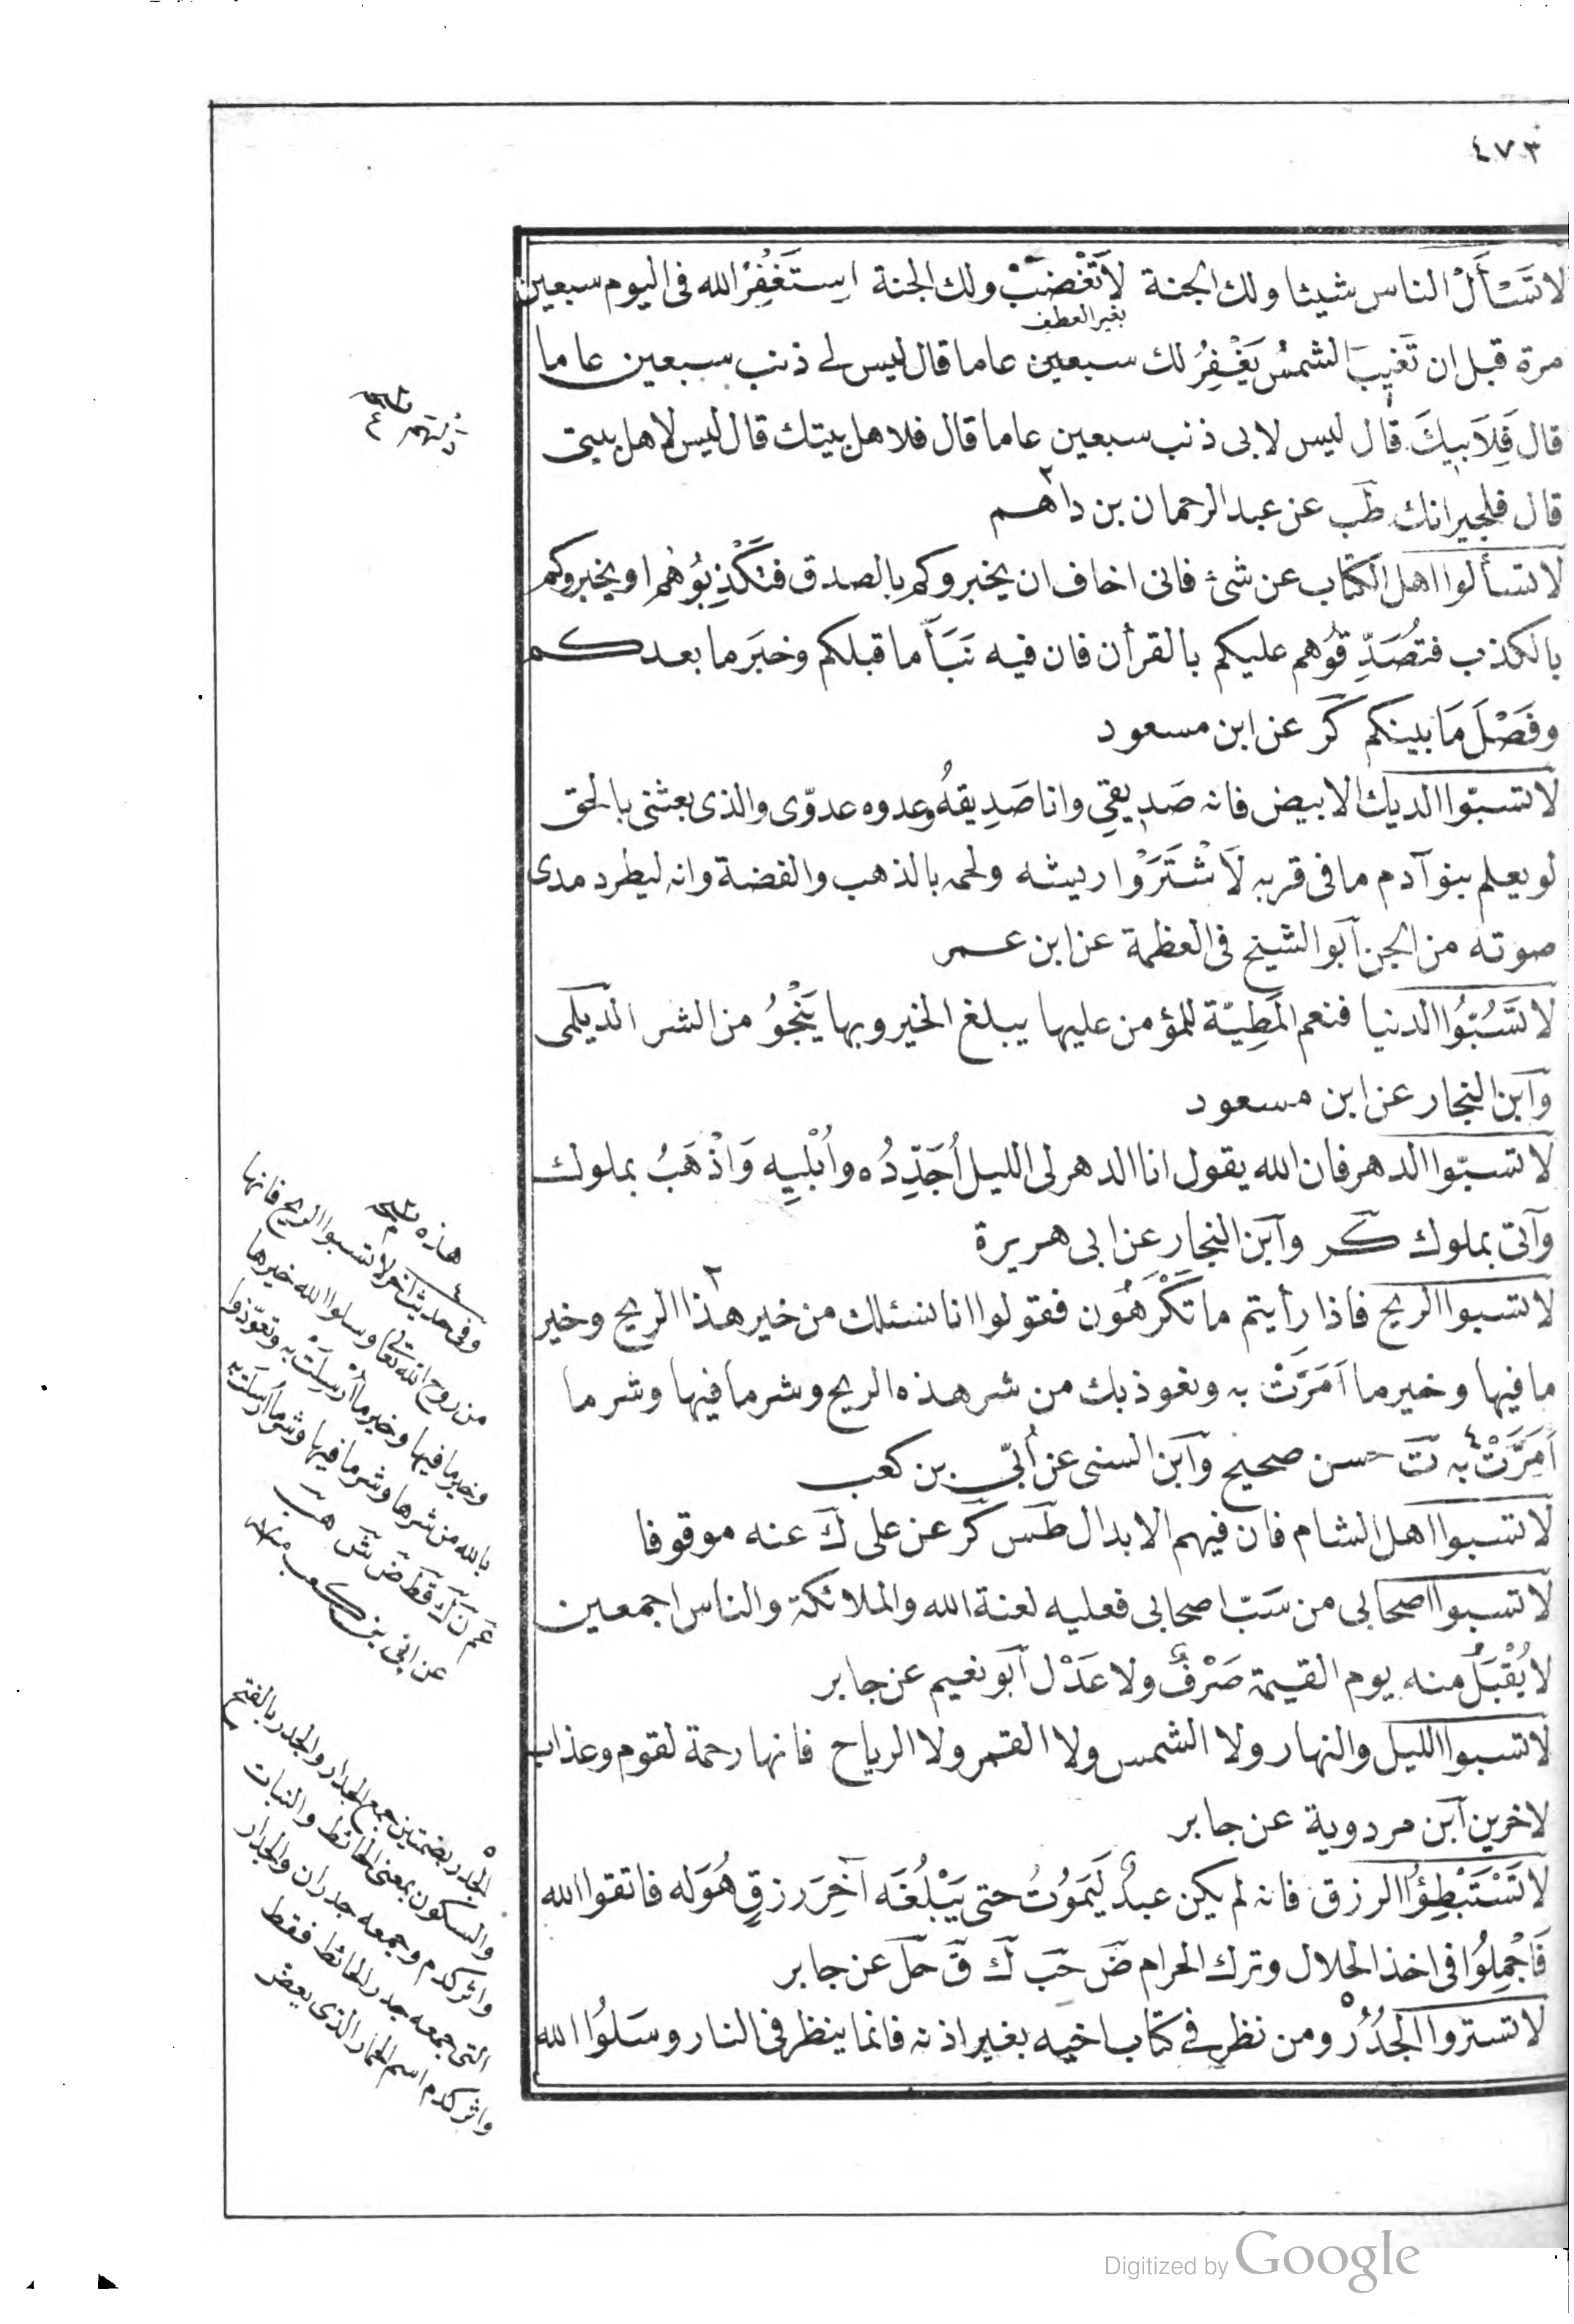 ٤٧٣
لَا تَسْأَلْ الناس شيئا ولك الجنة لَا تَغْضَبْ ولك الجنة اِسْتَغْفِرْ الله فى اليوم سبعين
بغير العطف
مرة قبل ان تَغِيبَ الشمسُ يَغْفِرْ لك سبعين عاما قال ليس لى ذنب سبعين عاما
قال فَلِاَبِيكَ قال ليس لابى ذنب سبعين عاما قال فلاهل بيتك قال ليس لاهل بيتى
قال فلجيرانك طب عن عبد الرحمان بن داهم ٢
لا تسألوا اهل الكتاب عن شئ فانى اخاف ان يخبروكم بالصدق فَتُكَذِّبُوهُم او يخبروكم
بالكذب فتُصَدِّقُوهم عليكم بالقرأن فان فيه نَبَأَ ما قبلكم وخبَرَ ما بعدكم
وفَصْلَ مَا بينكم كر عن ابن مسعود
لا تسبّوا الديك الابيض فانه صَدِيقِي وانا صَدِيقُهُ وعدوه عدوّى والذى بعثنى بالحق
لو يعلم بنو آدم ما فى قربه لَاشْتَرَوْا ريشه ولحمه بالذهب والفضة وانه ليطرد مدى
صوته من الجن ابو الشيخ فى العظمة عن ابن عمر
لا تَسُبُّوا الدنيا فنعم المَطِيّة للمؤمن عليها يبلغ الخير وبها يَنْجُوُ من الشر الديلمى
وابن النجار عن ابن مسعود
لا تسبّوا الدهر فان الله يقول انا الدهر لى الليل اُجَدِّدُه واُبْلِيه وَاذْهَبُ بملوك
وآتى بملوك كر وابن النجار عن ابى هريرة
لا تسبوا الريح فاذا رأيتم ما تَكْرَهُون فقولوا انا نسئلك من خير هذا ٢ الريح وخير
ما فيها وخير ما اَمَرَّتْ به ونعوذ بك من شر هذه الريح وشر ما فيها وشر ما
اَمِرَّتْ ٤ به ت حسن صحيح وابن السنى عن اُبَىّ بن كعب
لا تسبوا اهل الشام فان فيهم الابدال طس كر عن على ك عنه موقوفا
لا تسبوا اصحابى من سَبّ اصحابى فعليه لعنة الله والملائكة والناس اجمعين
لا يُقْبَلُ منه يوم القيمة صَرْفٌ ولا عَدْل ابو نعيم عن جابر
لا تسبوا الليل والنهار ولا الشمس ولا القمر ولا الرياح فانها رحمة لقوم وعذاب
لاخرين ابن مردوية عن جابر
لا تَسْتَبْطِؤُا الرزق فانه لم يكن عبدٌ لَيَمُوتُ حتى يَبْلُغَه آخِرَ رزقٍ هُوَ له فاتقوا الله
فَاَجْمِلُوا فى اخذ الحلال وترك الحرام ض حب ك ق حل عن جابر
لا تستروا الجُدُرْ ٥ ومن نظر فى كتاب اخيه بغير اذنه فانما ينظر فى النار وسَلوُا الله
هذه
٤
وفى حديث اخر لا تسبوا الريح فانها
من روح الله تعالى وسلوا الله خيرها
وخير ما فيها وخير ما اُرْسِلَتْ به وتعوّذوا
بالله من شرها وشر ما فيها وشر ما اُرسلت به
عن ابى بن كعب
٥
الجدر بضمتين جمع الجدار والجدر بالفتح
والسكون بمعنى الحائط والنبات
وجمعه جدران والجدار
التى جمعه جدر الحائط فقط
Digitized by Google